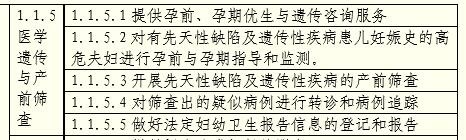 1.1.5
医学
遗传
与产
前筛
查
1.1.5.1 提供孕前、孕期优生与遗传咨询服务
1.1.5.2 对有先天性缺陷及遗传性疾病患儿妊娠史的高
危夫妇进行孕前与孕期指导和监测。
1.1.5.3 开展先天性缺陷及遗传性疾病的产前筛查
1.1.5.4 对筛查出的疑似病例进行转诊和病例追踪
1.1.5.5 做好法定妇幼卫生报告信息的登记和报告